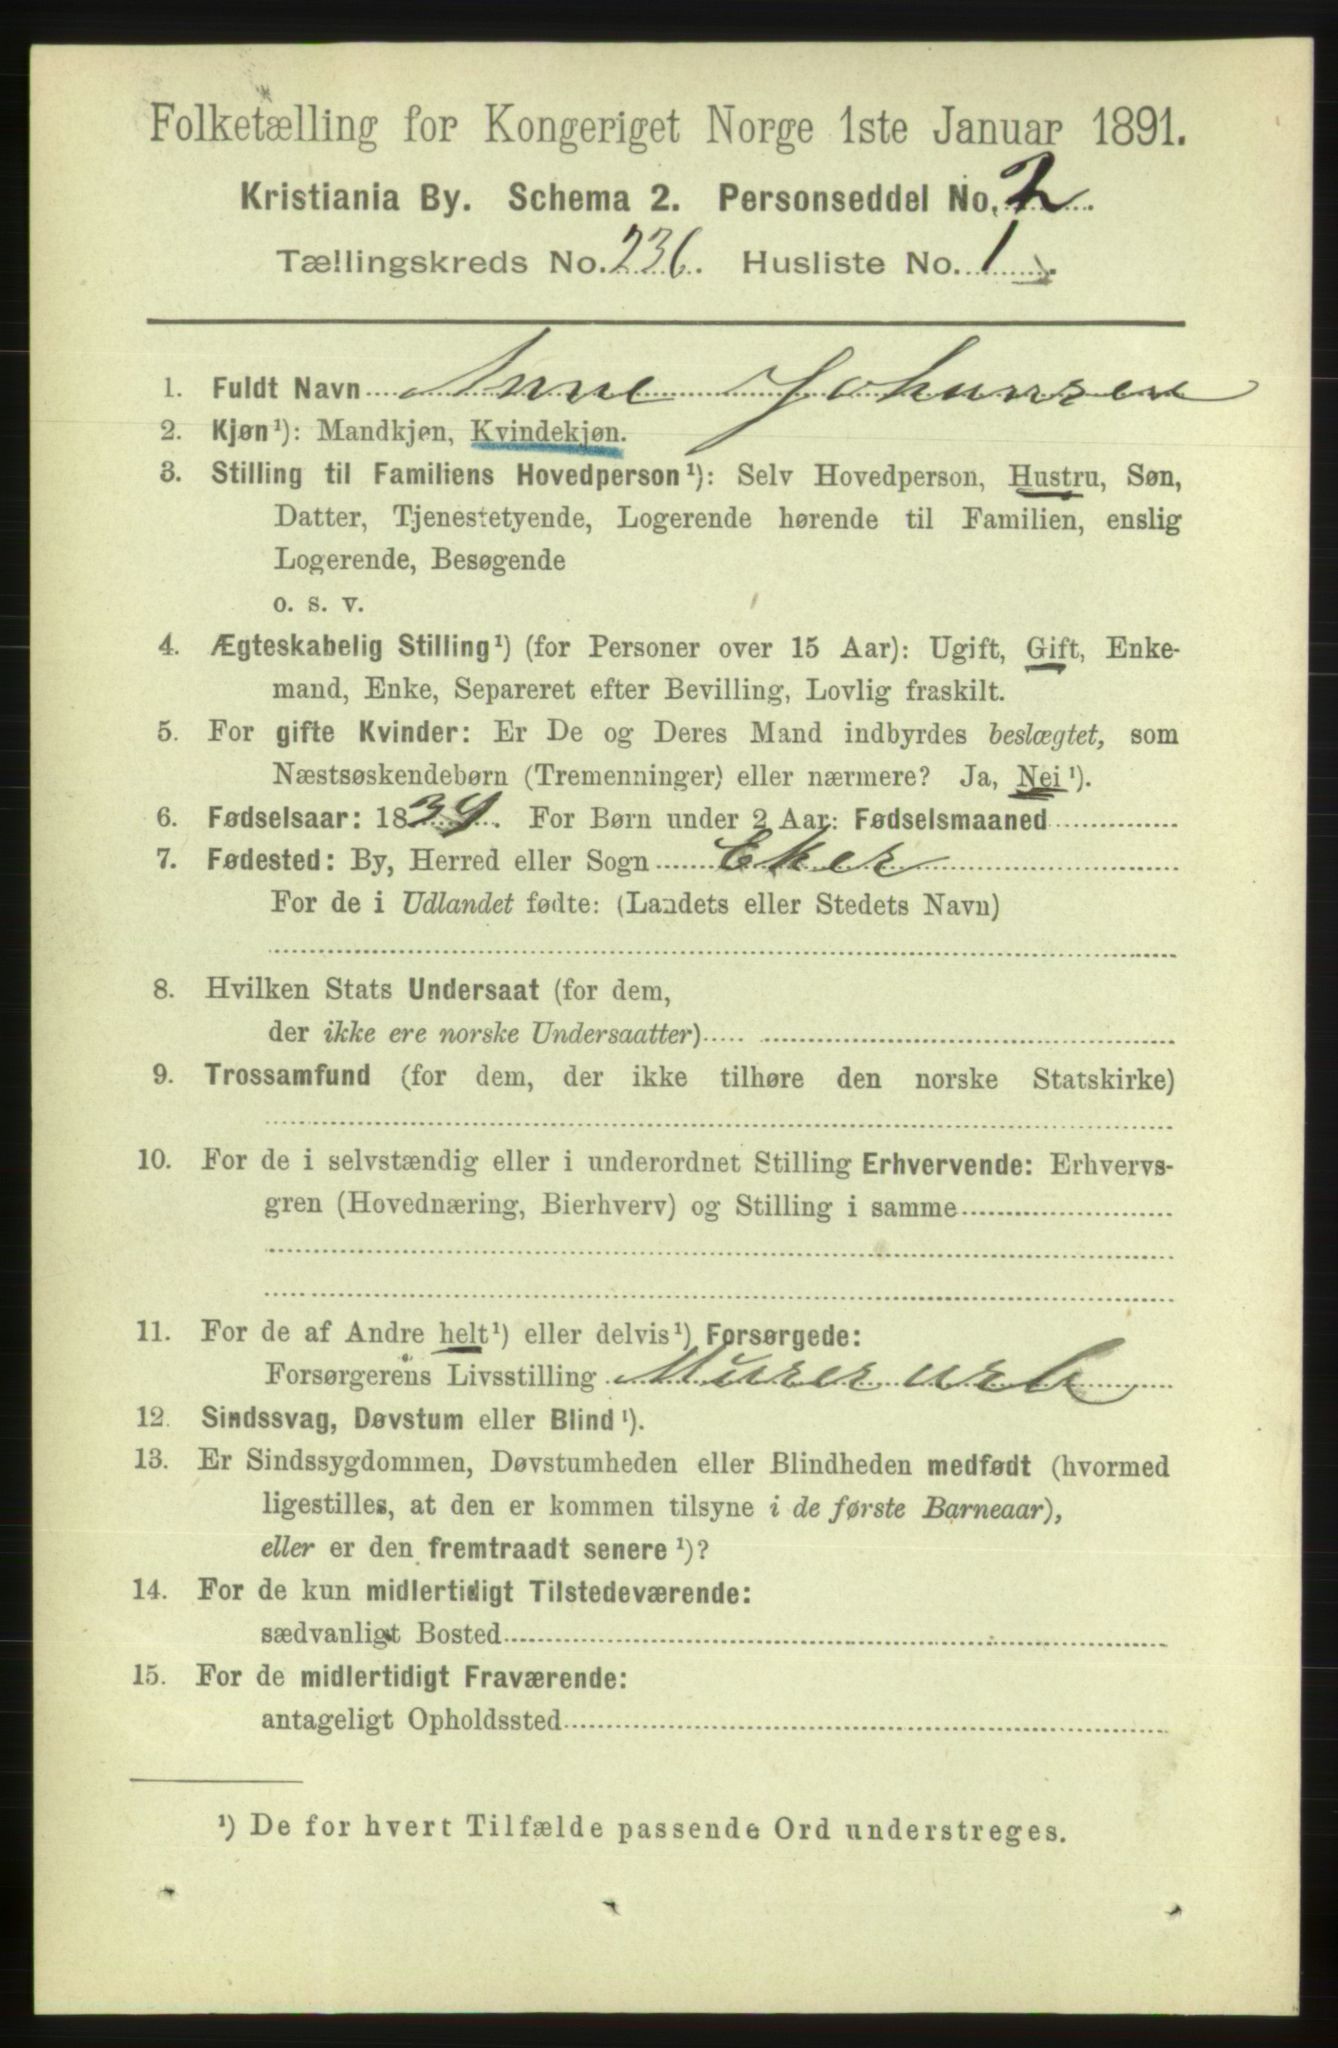 Folketælling for Kongeriget Norge 1ste Januar 1891.
Kristiania By. Schema 2. Personseddel No. 2
Tællingskreds No. 236. Husliste No. 1.
1. Fuldt Navn Anne Johansen
2. Kjøn¹): Mandkjøn, Kvindekjøn.
3. Stilling til Familiens Hovedperson¹): Selv Hovedperson, Hustru, Søn,
Datter, Tjenestetyende, Logerende hørende til Familien, enslig
Logerende, Besøgende
o. s. v.
4. Ægteskabelig Stilling¹) (for Personer over 15 Aar): Ugift, Gift, Enke-
mand, Enke, Separeret efter Bevilling, Lovlig fraskilt.
5. For gifte Kvinder: Er De og Deres Mand indbyrdes beslægtet, som
Næstsøskendebørn (Tremenninger) eller nærmere? Ja, Nei¹).
6. Fødselsaar: 1839. For Børn under 2 Aar: Fødselsmaaned
7. Fødested: By, Herred eller Sogn Eker
For de i Udlandet fødte: (Landets eller Stedets Navn)
8. Hvilken Stats Undersaat (for dem,
der ikke ere norske Undersaatter)
9. Trossamfund (for dem, der ikke tilhøre den norske Statskirke)
10. For de i selvstændig eller i underordnet Stilling Erhvervende: Erhvervs-
gren (Hovednæring, Bierhverv) og Stilling i samme
11. For de af Andre helt¹) eller delvis¹) Forsørgede:
Forsørgerens Livsstilling Murerarb
12. Sindssvag, Døvstum eller Blind¹).
13. Er Sindssygdommen, Døvstumheden eller Blindheden medfødt (hvormed
ligestilles, at den er kommen tilsyne i de første Barneaar),
eller er den fremtraadt senere¹)?
14. For de kun midlertidigt Tilstedeværende:
sædvanligt Bosted
15. For de midlertidigt Fraværende:
antageligt Opholdssted
¹) De for hvert Tilfælde passende Ord understreges.